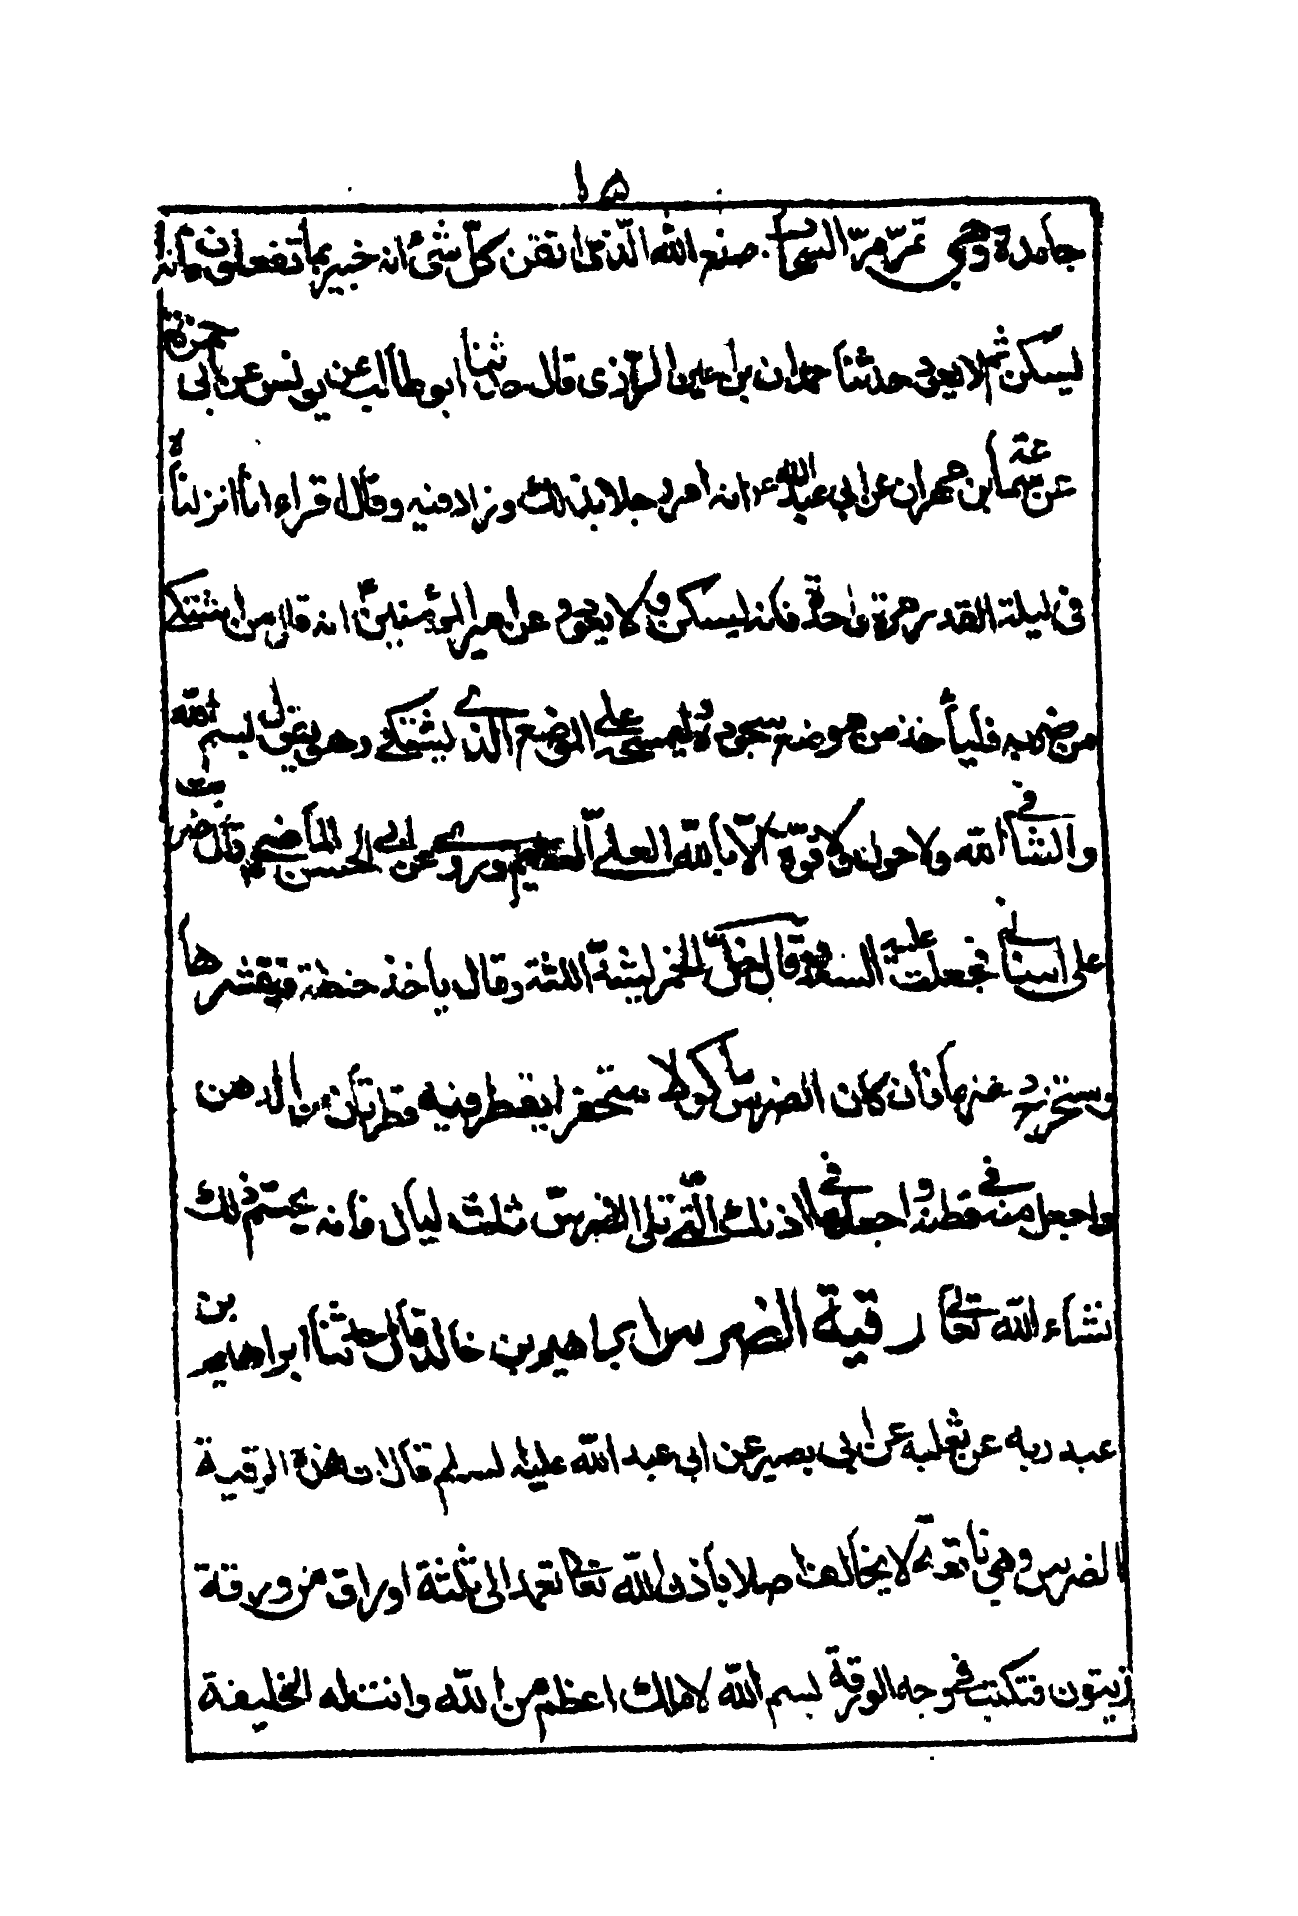 ١٥
جامدة وهي تمرّ مرّ السحاب صنع اللّه الّذي اتقن كلّ شئ انه خبير بما تفعلون فانه
يسكن ثم لا يعود حدثنا حمدان بن اعين الرازي قال حدثنا ابو طالب عن يونس عن ابي حمزة
عن سماعة بن مهران عن ابي عبد الله ع انه امر رجلا بذلك وزاد فيه وقال قراء انا انزلناه
في ليلة القدر مرة واحدة فانه يسكن ولا يعود وعن امير المؤمنين انه قال من اشتكى
من ضرسه فلياخذ من موضع سجوده ثم يمسح على الموضع الذي يشتكي وهو يقول بسم اللّه
والشافي اللّه ولا حول ولا قوّة الّا باللّه العليّ العظيم وروي عن ابي الحسن الماضي قال ضربت
على اسناني فجعلت عليه السعد وقال خلّ الخمر يشدّ اللثة وقال ياخذ حنظلة فيقشرها
ويستخرج دهنها فان كان الضرس مأكولا منحفرا يقطر فيه قطرتان من الدهن
واجعل منه في قطنة واجعلها في اذنك الّتي تلي الضرس ثلث ليال فانه يحسم ذلك
انشاء اللّه تعالى رقية الضرس ابراهيم بن خالد قال حدثنا ابراهيم بن
عبد ربه عن ثعلبه عن ابي بصير عن ابي عبد اللّه عليه السلم قال ان هذه الرقية
الضرس وهي نافعة لا يخالف اصلا باذن اللّه تعالى تعمد الى ثلثة اوراق من ورقة
زيتون فتكتب في وجه الورقة بسم اللّه لا ملك اعظم من اللّه وانت له الخليفة